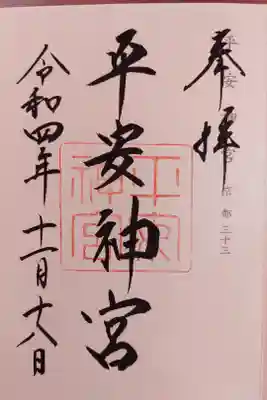 奉拝
平安神宮 京都三十三
平安神宮
平安神宮
令和四年十一月十八日